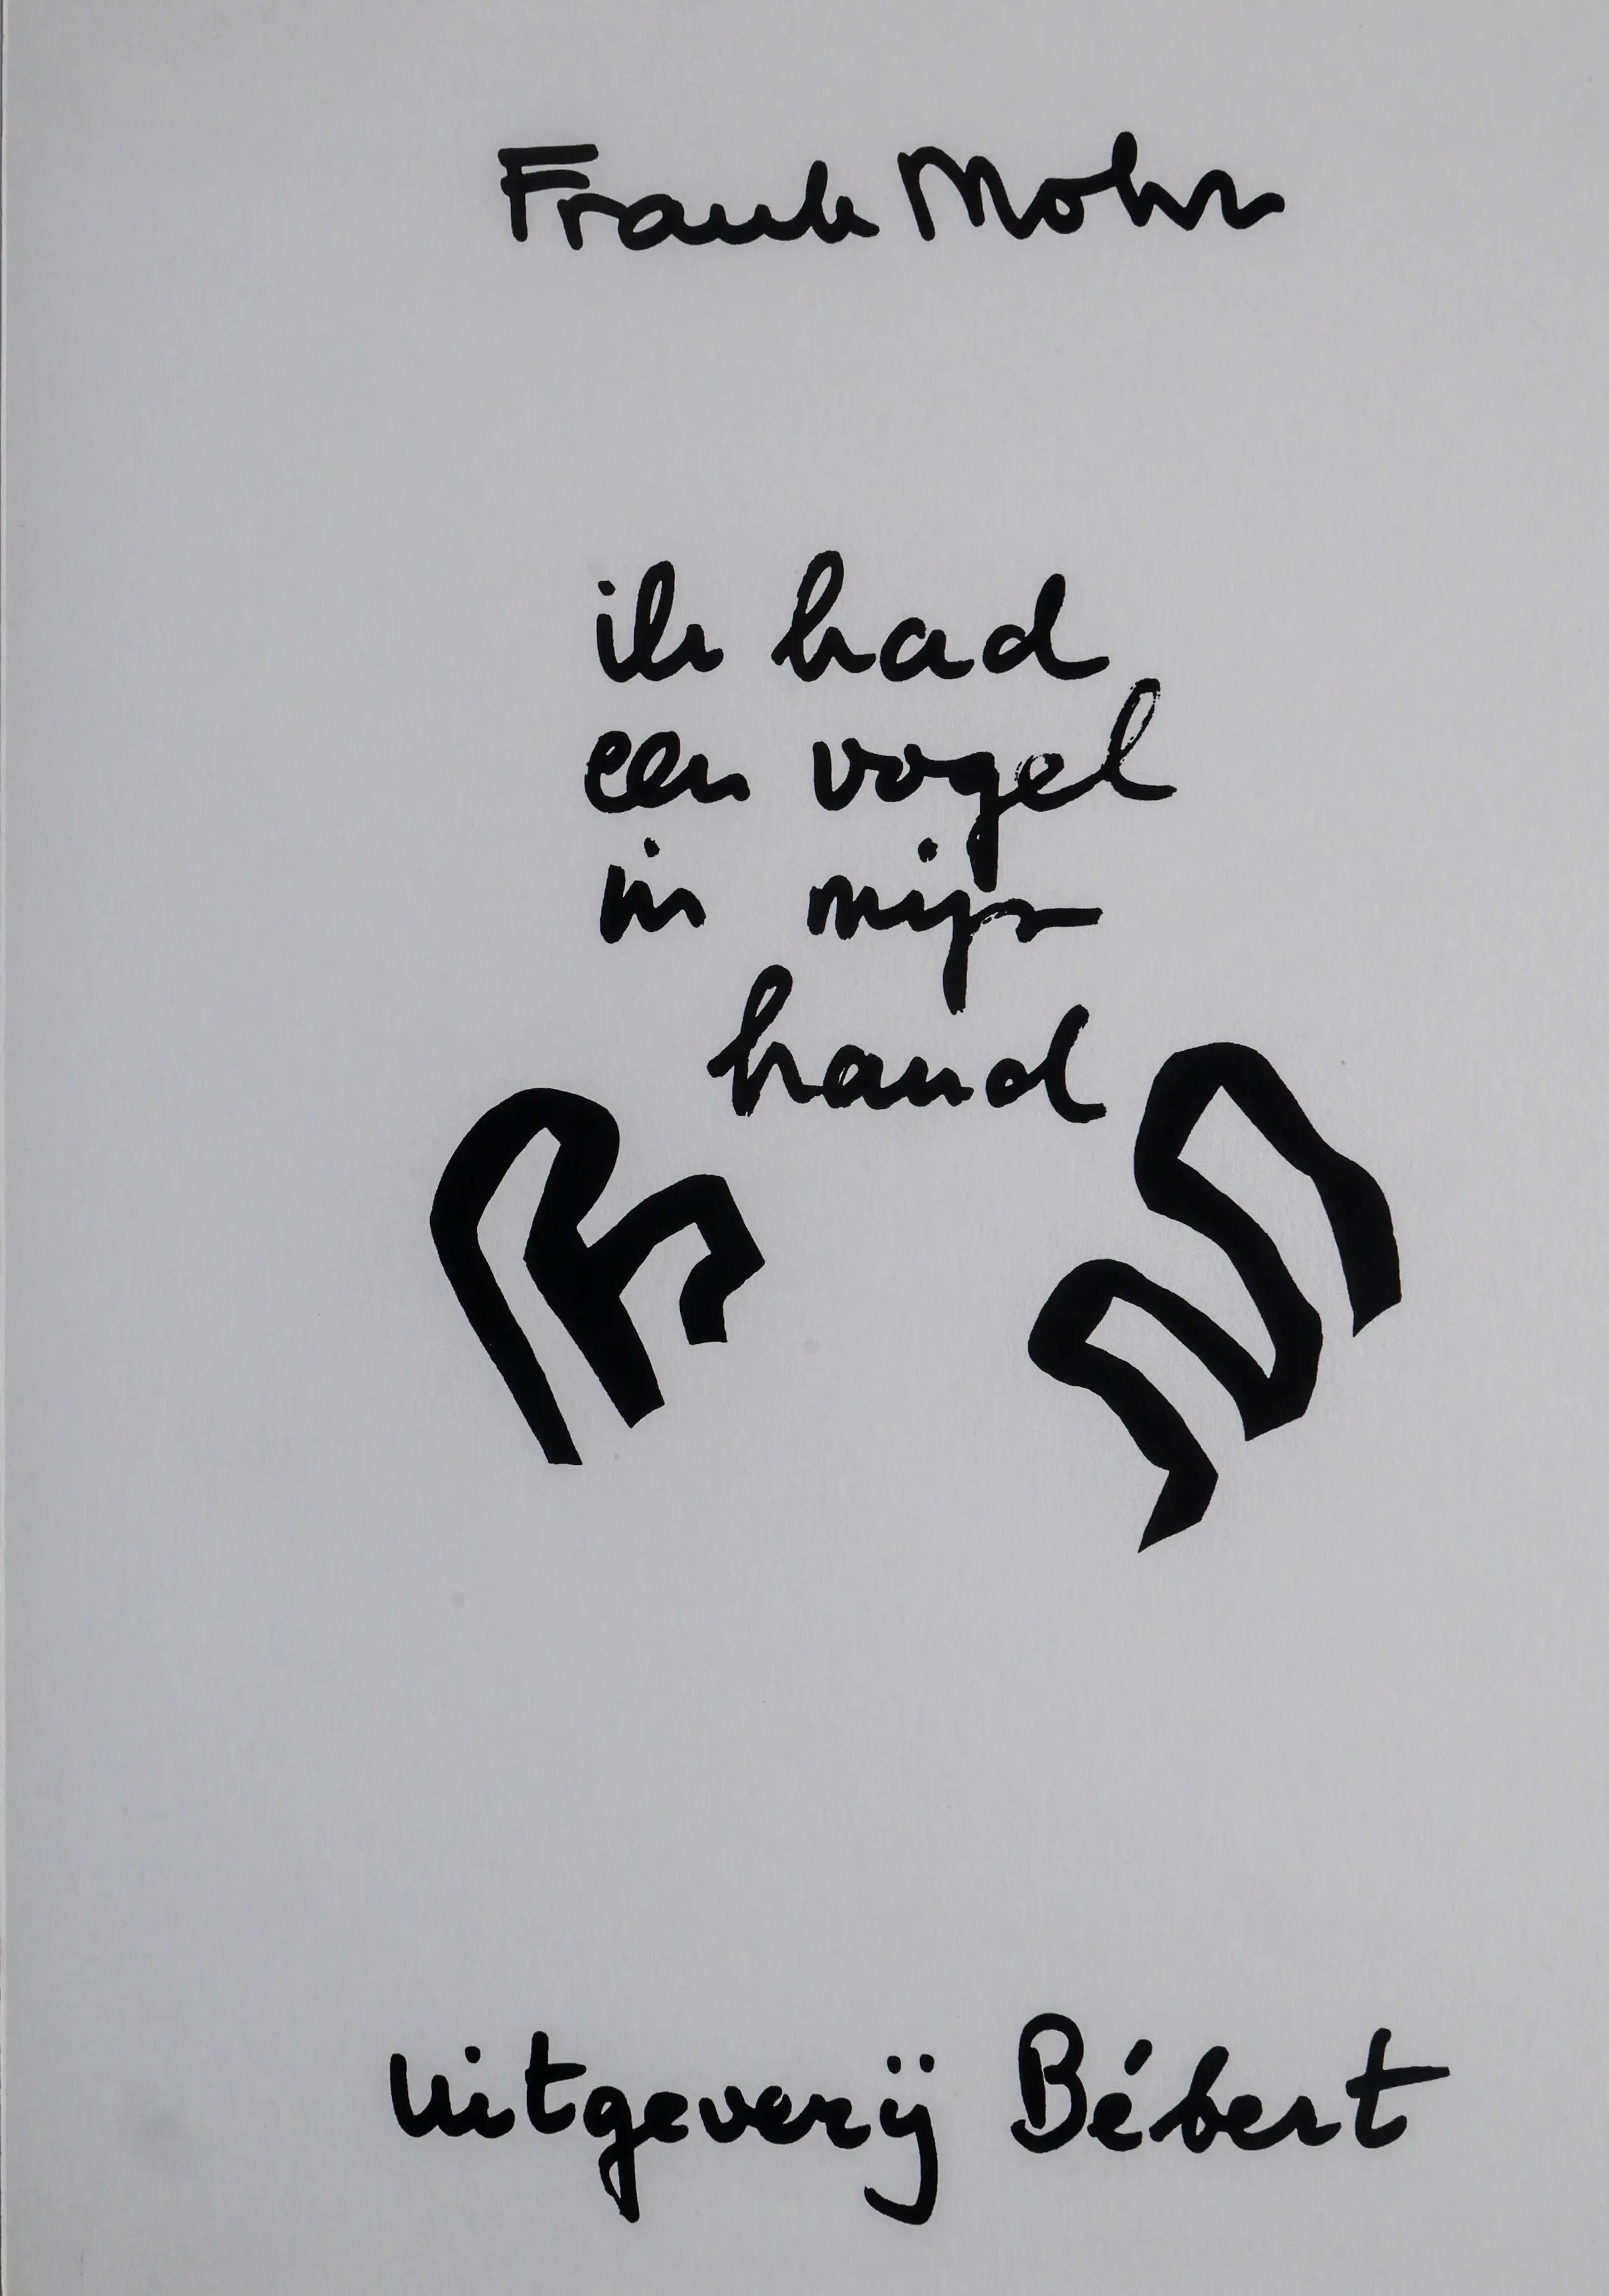 Frank Mohr
ik had
een vogel
in mijn
hand
uitgeverij Bébert